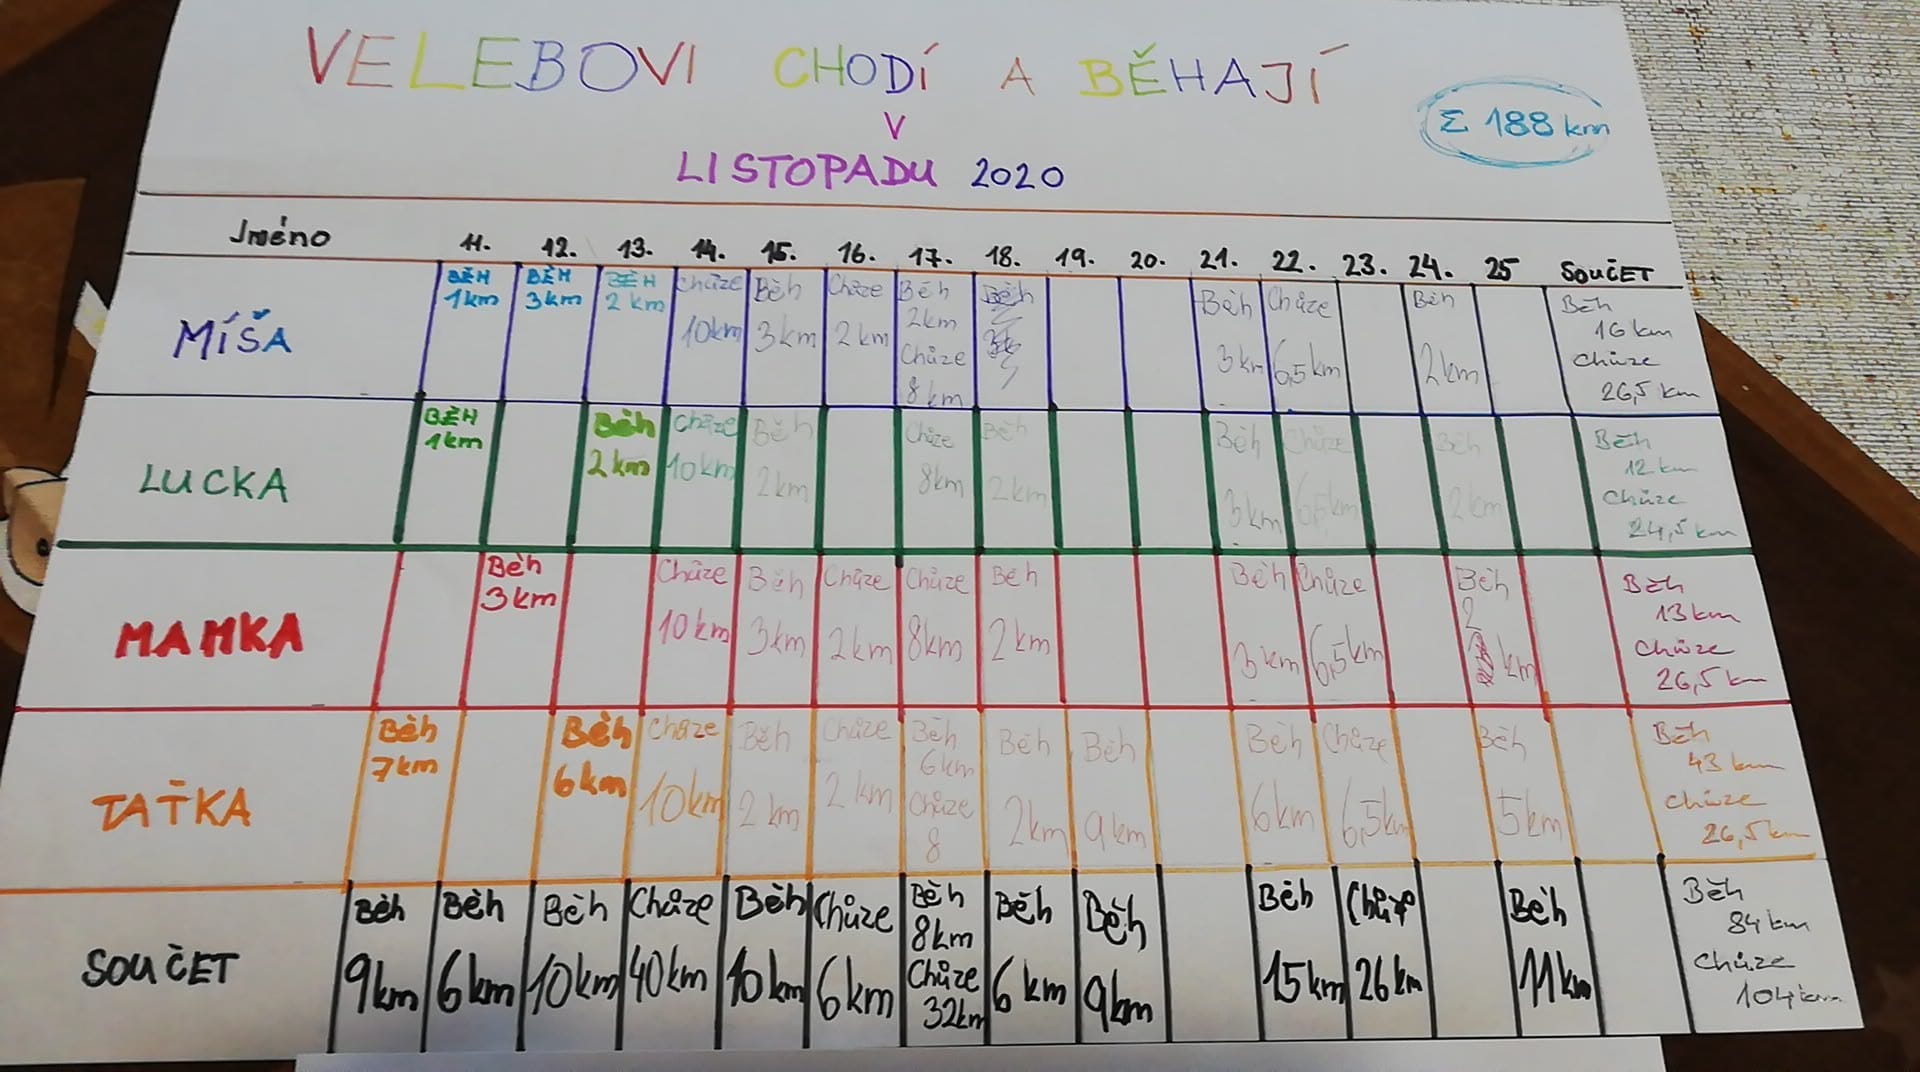 VELEBOVI CHODÍ A BĚHAJÍ
V
LISTOPADU 2020
Σ 188 km
Jméno 11. 12. 13. 14. 15. 16. 17. 18. 19. 20. 21. 22. 23. 24. 25 SOUČET
MÍŠA
BĚH 1km
BĚH 3km
BĚH 2 km
Chůze 10km
Běh 3km
Chůze 2 km
Běh 2km Chůze 8km
Běh
Běh 3km
Chůze 6,5km
Běh 2km
Běh 16 km Chůze 26,5 km
LUCKA
BĚH 1km
Běh 2km
Chůze 10km
Běh 2km
Chůze 8km
Běh 2km
Běh 3km
Chůze 6,5km
Běh 2km
Běh 12 km Chůze 24,5 km
MAMKA
Běh 3km
Chůze 10km
Běh 3km
Chůze 2km
Chůze 8km
Běh 2km
Běh 3km
Chůze 6,5km
Běh 2 km
Běh 13km Chůze 26,5 km
TAŤKA
Běh 7km
Běh 6km
Chůze 10km
Běh 2km
Chůze 2km
Běh 6km Chůze 8
Běh 2km
Běh 9km
Běh 6km
Chůze 6,5km
Běh 5km
Běh 43 km Chůze 26,5km
SOUČET
Běh 9km
Běh 6km
Běh 10km
Chůze 40km
Běh 10km
Chůze 6km
Běh 8km Chůze 32km
Běh 6km
Běh 9km
Běh 15km
Chůze 26km
Běh 11km
Běh 84 km Chůze 104km